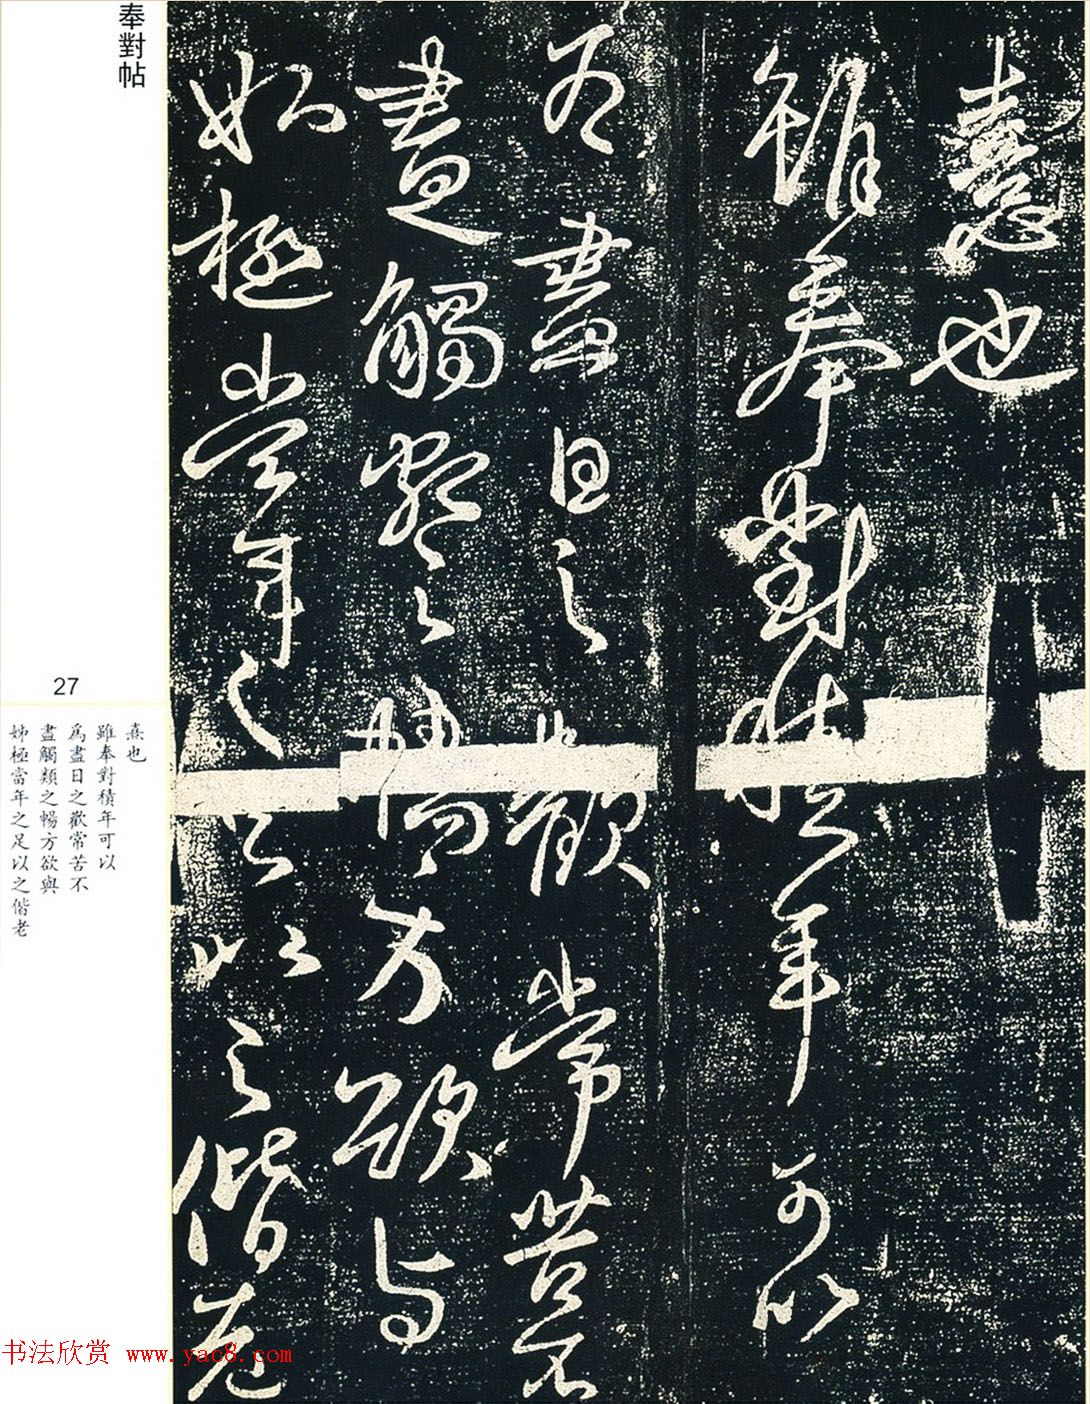 憙也
雖奉對積年可以
為盡日之歡常苦不
盡觸類之暢方欲與
姊極當年之足以之偕老
奉對帖
27
憙也
雖奉對積年可以
為盡日之歡常苦不
盡觸類之暢方欲與
姊極當年之足以之偕老
书法欣赏 www.yac8.com